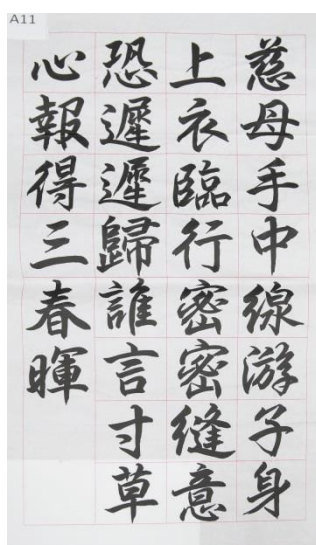 A11
慈母手中線游子身
上衣臨行密密縫意
恐遲遲歸誰言寸草
心報得三春暉